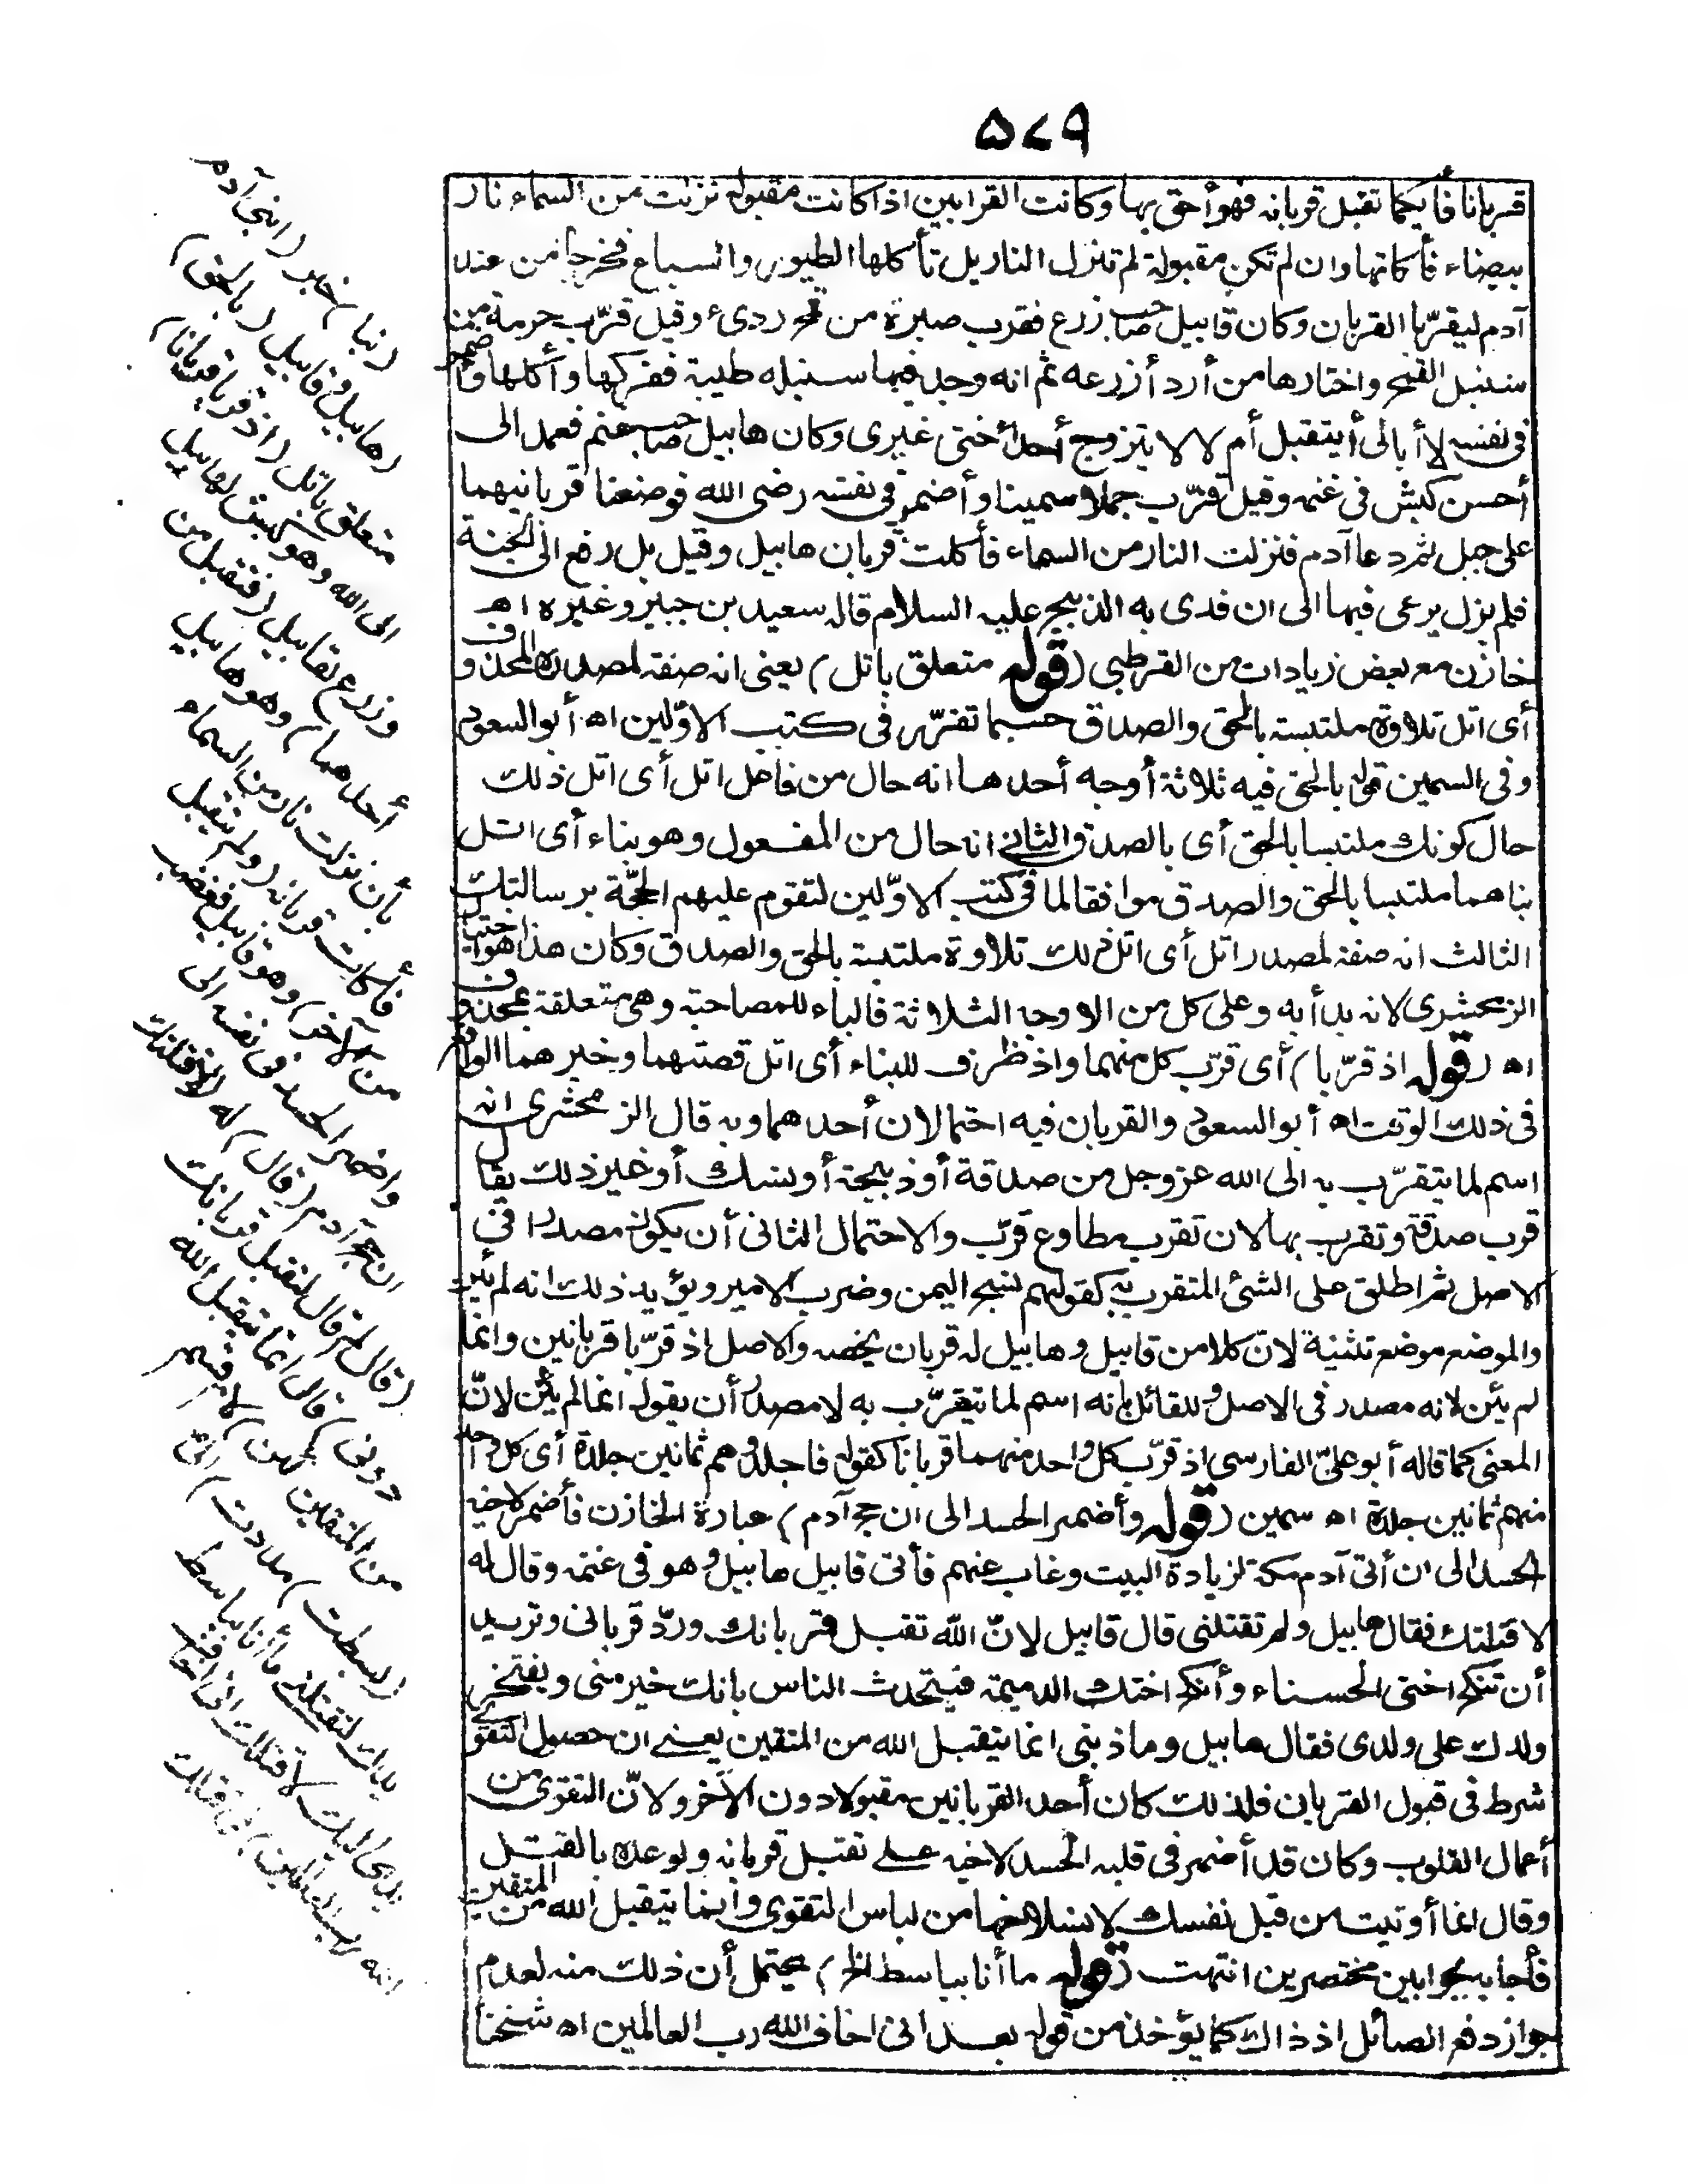 ٥٧٩
قربانا فأيكما تقبل قربانه فهو أحق بها وكانت القرابين اذا كانت مقبولة نزلت من السماء نار
بيضاء فأكلتها وان لم تكن مقبولة لم تنزل النار بل تأكلها الطيور والسباع فخرجا من عند
آدم ليقربا القربان وكان قابيل صاحب زرع فقرب صبرة من قمح ردىء وقيل قرّب حزمة من
سنبل القمح واختارها من أردأ زرعه ثم انه وجد فيها سنبلة طيبة ففركها وأكلها وأضمر
فى نفسه لا أبالى أيتقبل أم لا لا يتزوج أحد أختى غيرى وكان هابيل صاحب غنم فعمد الى
أحسن كبش فى غنمه وقيل قرّب جملا سمينا وأضمر فى نفسه رضى الله فوضعا قربانيهما
على جبل ثم دعا آدم فنزلت النار من السماء فأكلت قربان هابيل وقيل بل رفع الى الجنة
فلم يزل يرعى فيها الى ان فدى به الذبيح عليه السلام قاله سعيد بن جبير وغيره اه
خازن مع بعض زيادات من القرطبى (قوله متعلق باتل) يعنى انه صفة لمصدره المحذوف
أى اتل تلاوة ملتبسة بالحق والصدق حسبما تقرّر فى كتب الاوّلين اه أبو السعود
وفى السمين قوله بالحق فيه ثلاثة أوجه أحدها انه حال من فاعل اتل أى اتل ذلك
حال كونك ملتبسا بالحق أى بالصدق والثانى انه حال من المفعول وهو نباء أى اتل
نباهما ملتبسا بالحق والصدق موافقا لما فى كتب الاوّلين لتقوم عليهم الحجّة برسالتك
الثالث انه صفة لمصدر اتل أى اتل ذلك تلاوة ملتبسة بالحق والصدق وكان هذا هو اختيار
الزمخشرى لانه بدأ به وعلى كل من الاوجه الثلاثة فالباء للمصاحبة وهى متعلقة بمحذوف
اه (قوله اذ قرّبا) أى قرّب كل منهما واذ ظرف للنباء أى اتل قصتهما وخبرهما الواقع
فى ذلك الوقت اه أبو السعود والقربان فيه احتمالان أحدهما وبه قال الزمخشرى انه
اسم لما يتقرّب به الى الله عز وجل من صدقة أو ذبيحة أو نسك أو غير ذلك يقال
قرب صدقة وتقرب بها لان تقرب مطاوع قرّب والاحتمال الثانى أن يكون مصدرا فى
الاصل ثم اطلق على الشئ المتقرب به كقولهم نسج اليمن وضرب الامير ويؤيد ذلك انه لم يثن
والموضع موضع تثنية لانّ كلا من قابيل وهابيل له قربان يخصه والاصل اذ قرّبا قربانين وانما
لم يثن لانه مصدر فى الاصل وللقائل بانه اسم لما يتقرّب به لا مصدر أن يقول انما لم يثن لانّ
المعنى كما قاله أبو علىّ الفارسى اذ قرّب كل واحد منهما قربانا كقوله فاجلدوهم ثمانين جلدة أى كل واحد
منهم ثمانين جلدة اه سمين (قوله وأضمر الحسد الى ان حج آدم) عبارة الخازن فأضمر لاخيه
الحسد الى ان أتى آدم مكة لزيادة البيت وغاب عنهم فأتى قابيل هابيل وهو فى غنمه وقال له
لاقتلنك فقال هابيل ولم تقتلنى قال قابيل لانّ الله تقبل قربانك وردّ قربانى وتريد
أن تنكح اختى الحسناء وأنكح اختك الدميمة فيتحدث الناس بانك خير منى ويفتخر
ولدك على ولدى فقال هابيل وما ذنبى انما يتقبل الله من المتقين يعنى ان حصول التقوى
شرط فى قبول القربان فلذلك كان أحد القربانين مقبولا دون الآخر ولانّ التقوى من
أعمال القلوب وكان قد أضمر فى قلبه الحسد لاخيه على تقبل قربانه وتوعده بالقتل
وقال انما أوتيت من قبل نفسك لانسلاخها من لباس التقوى وانما يتقبل الله من المتقين
فأجابه بجوابين مختصرين انتهت (قوله ما أنا بباسط الخ) يحتمل أن ذلك منه لعدم
جواز دفع الصائل اذ ذاك كما يؤخذ من قوله بعد انى اخاف الله رب العالمين اه شيخنا
(نبا) خبر (ابنى آدم)
(هابيل وقابيل (بالحق)
متعلق باتل (اذ قربا قربانا)
الى الله وهو كبش لهابيل
وزرع لقابيل (فتقبل من
أحدهما) وهو هابيل
بأن نزلت نار من السماء
فأكلت قربانه (ولم يتقبل
من الآخر) وهو قابيل فغضب
واضمر الحسد فى نفسه الى
ان حج آدم (قال) له (لاقتلنك)
(قال لم قال لتقبل قربانك
دونى) قال انما يتقبل الله
من المتقين لئن) لام قسم
(بسطت) مددت (الىّ
يدك لتقتلنى ما أنا بباسط
يدى اليك لاقتلك انى اخاف
الله رب العالمين) فى قتلك